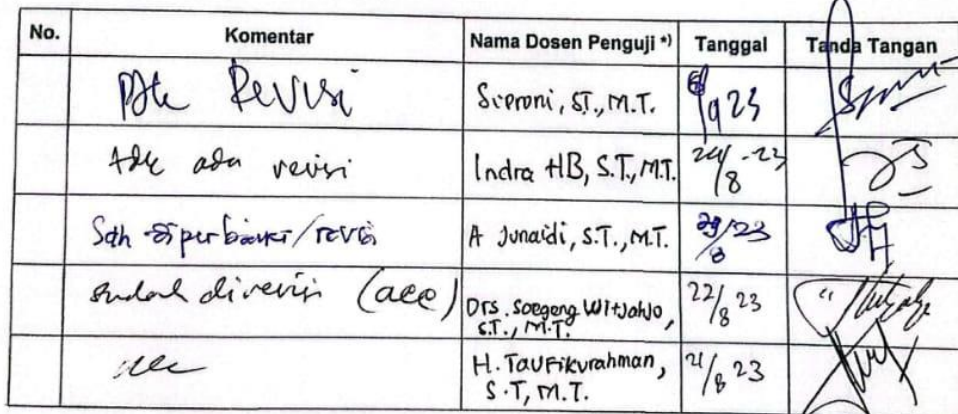 No. Komentar Nama Dosen Penguji *) Tanggal Tanda Tangan
Revisi Suproni, S.T., M.T. /9 23
Tdk ada revisi Indra HB, S.T., M.T. 24/8 - 23
Sdh diperbaiki/revisi A Junaidi, S.T., M.T. 29/8 23
sudah direvisi (acc) Drs. Soegeng Witjahjo, 22/8 23
S.T., M.T.
acc H. Taufikurahman, 21/8 23
S.T, M.T.